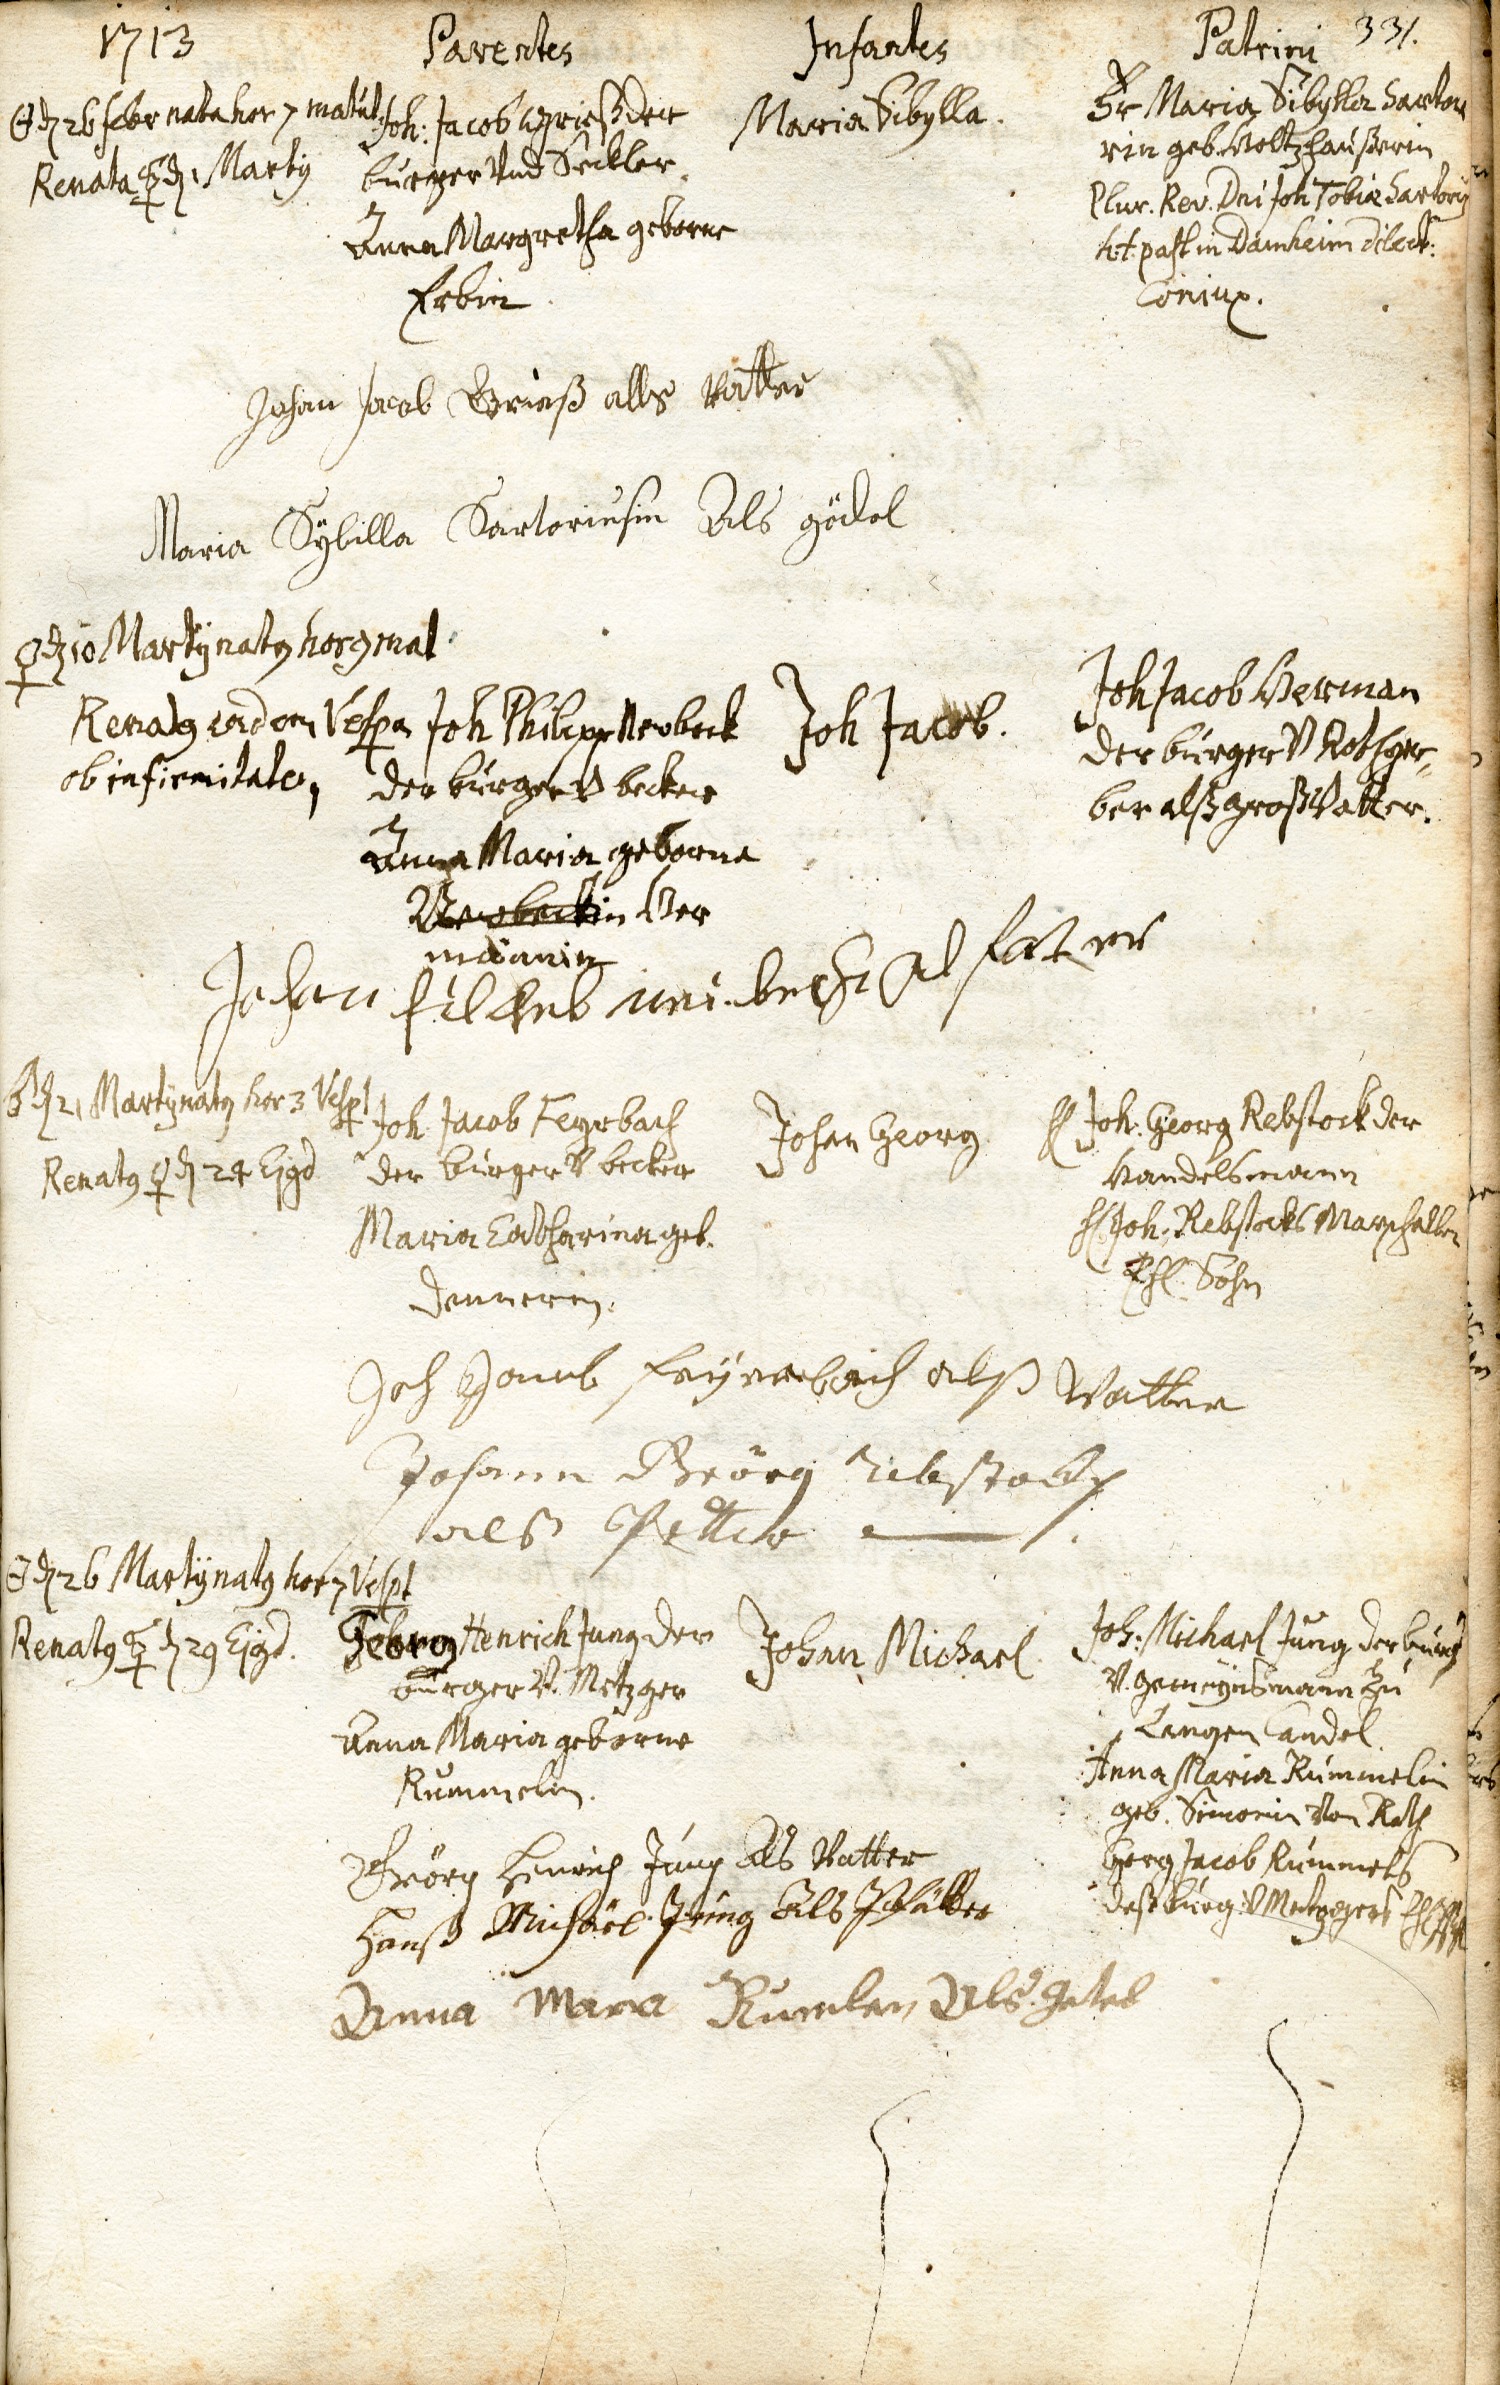 1713 Parentes Infantes Patrini 331.
☉ d 26 febr nata hor 7 matut.
Renata ☿ d 1 Martij
Joh: Jacob Grieß der
burger Und Seckler.
Anna Margretha geborne
Erbin.
Maria Sibylla.
Fr Maria Sibylla Sarto
rin geb. Holtzhaußerin
Plur. Rev. Dni Joh Tobiæ Sartorij
h.t. past in Damheim dilect.
Coniux.
Johan Jacob Grieß alls Vatter
Maria Sÿbilla Sartoriusin Als gödel
♀ d 10 Martij natq hor 9 mat
Renatq eodem Vespa
ob infirmitatem,
Joh Philipp Neubeck
der burger V becker
Anna Maria geborne
Neubeckin Ver
mänin
Joh Jacob.
Joh Jacob Verman
der burger V Rothger
ber alß großVatter.
Johan
♄ d 21 Martij natq hor 3 Vespt
Renatq ♀ d 24 Ejqd
Joh Jacob Feyrbach
der burger V becker
Maria Catharina geb.
Dennerin.
Johan Georg
H Joh. Georg Rebstock der
Handelsmann
H. Joh. Rebstocks
Ehl. Sohn
Joh Jacob Feÿrebach alß Vatter
Johann Geörg Rebstockh
alß Petter
☉ d 26 Martij natq hor 7 Vespt
Renatq ☿ d 29 Ejqd.
Georg Henrich Jung der
burger V. Metzger
Anna Maria geborne
Rummelin.
Johan Michael
Joh: Michael Jung der burg
V. gemeÿnsmann zu
Langen Candel.
Anna Maria Rummelin
geb. Simonin von Roth
Georg Jacob Rummels
deß burg. V Metzgers
Geörg Henrich Jung Als Vatter
Hanß Michäel Jung Als Pfätter
Anna Mara Rumlen Als gotel